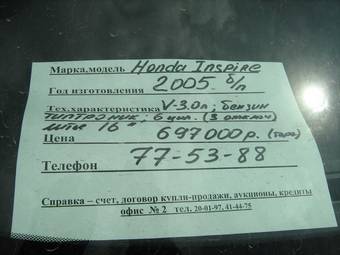 Марка,модель Honda Inspire
Год изготовления 2005 б/п
Тех.характеристика V-3.0л; бензин
типтроник; 6 цил. (3 отключ)
литьё 16"
Цена 697000р. (торг)
Телефон 77-53-88
Справка – счет, договор купли-продажи, аукционы, кредиты
офис № 2 тел. 20-01-97, 41-44-75